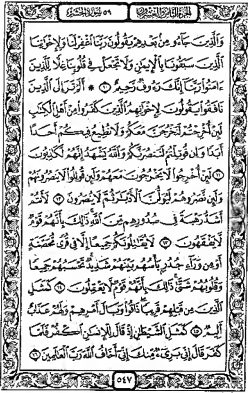 الجزء الثامن والعشرون ٥٩ سورة الحشر
وَٱلَّذِينَ جَآءُو مِنۢ بَعْدِهِمْ يَقُولُونَ رَبَّنَا ٱغْفِرْ لَنَا وَلِإِخْوَٰنِنَا
ٱلَّذِينَ سَبَقُونَا بِٱلْإِيمَٰنِ وَلَا تَجْعَلْ فِى قُلُوبِنَا غِلًّا لِّلَّذِينَ
ءَامَنُوا۟ رَبَّنَآ إِنَّكَ رَءُوفٌ رَّحِيمٌ ١٠ ۞ أَلَمْ تَرَ إِلَى ٱلَّذِينَ
نَافَقُوا۟ يَقُولُونَ لِإِخْوَٰنِهِمُ ٱلَّذِينَ كَفَرُوا۟ مِنْ أَهْلِ ٱلْكِتَٰبِ
لَئِنْ أُخْرِجْتُمْ لَنَخْرُجَنَّ مَعَكُمْ وَلَا نُطِيعُ فِيكُمْ أَحَدًا
أَبَدًا وَإِن قُوتِلْتُمْ لَنَنصُرَنَّكُمْ وَٱللَّهُ يَشْهَدُ إِنَّهُمْ لَكَٰذِبُونَ ١١
لَئِنْ أُخْرِجُوا۟ لَا يَخْرُجُونَ مَعَهُمْ وَلَئِن قُوتِلُوا۟ لَا يَنصُرُونَهُمْ
وَلَئِن نَّصَرُوهُمْ لَيُوَلُّنَّ ٱلْأَدْبَٰرَ ثُمَّ لَا يُنصَرُونَ ١٢ لَأَنتُمْ
أَشَدُّ رَهْبَةً فِى صُدُورِهِم مِّنَ ٱللَّهِ ذَٰلِكَ بِأَنَّهُمْ قَوْمٌ
لَّا يَفْقَهُونَ ١٣ لَا يُقَٰتِلُونَكُمْ جَمِيعًا إِلَّا فِى قُرًى مُّحَصَّنَةٍ
أَوْ مِن وَرَآءِ جُدُرٍۭ بَأْسُهُم بَيْنَهُمْ شَدِيدٌ تَحْسَبُهُمْ جَمِيعًا
وَقُلُوبُهُمْ شَتَّىٰ ذَٰلِكَ بِأَنَّهُمْ قَوْمٌ لَّا يَعْقِلُونَ ١٤ كَمَثَلِ
ٱلَّذِينَ مِن قَبْلِهِمْ قَرِيبًا ذَاقُوا۟ وَبَالَ أَمْرِهِمْ وَلَهُمْ عَذَابٌ
أَلِيمٌ ١٥ كَمَثَلِ ٱلشَّيْطَٰنِ إِذْ قَالَ لِلْإِنسَٰنِ ٱكْفُرْ فَلَمَّا
كَفَرَ قَالَ إِنِّى بَرِىٓءٌ مِّنكَ إِنِّىٓ أَخَافُ ٱللَّهَ رَبَّ ٱلْعَٰلَمِينَ ١٦
٥٤٧